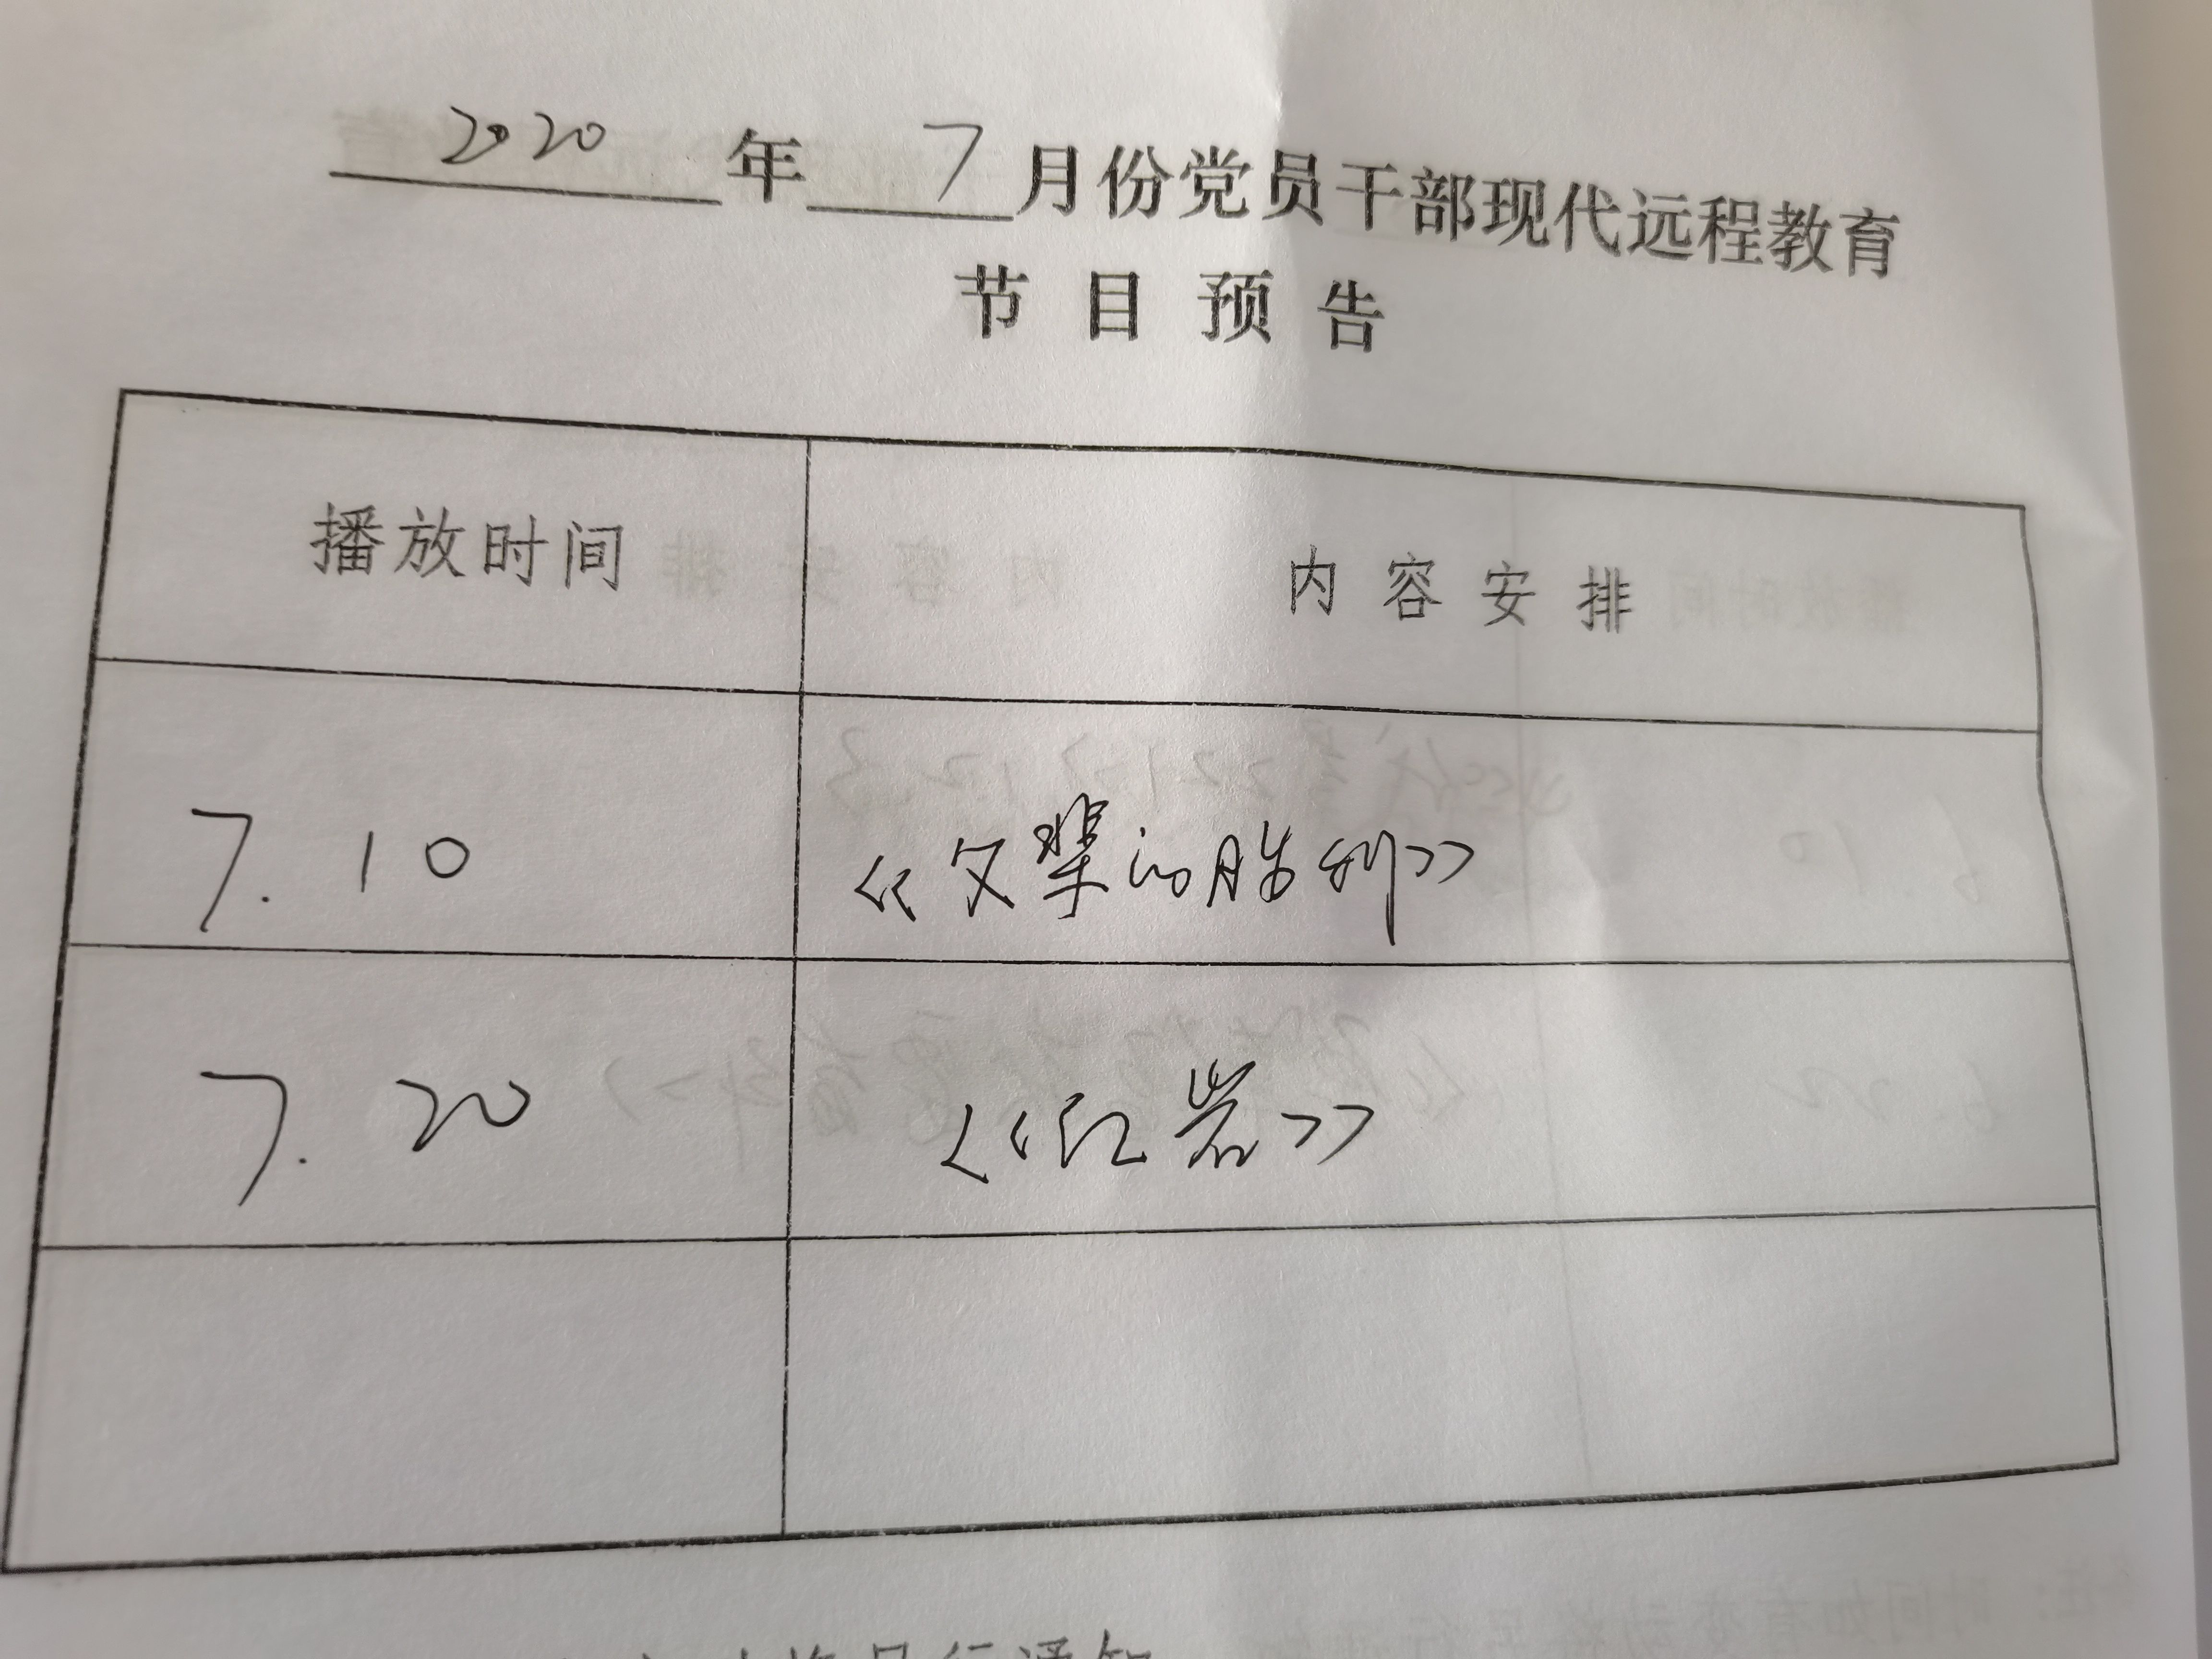 2020年7月份党员干部现代远程教育
节目预告
播放时间 内容安排
7.10 《父辈的胜利》
7.20 《红岩》
另行通知